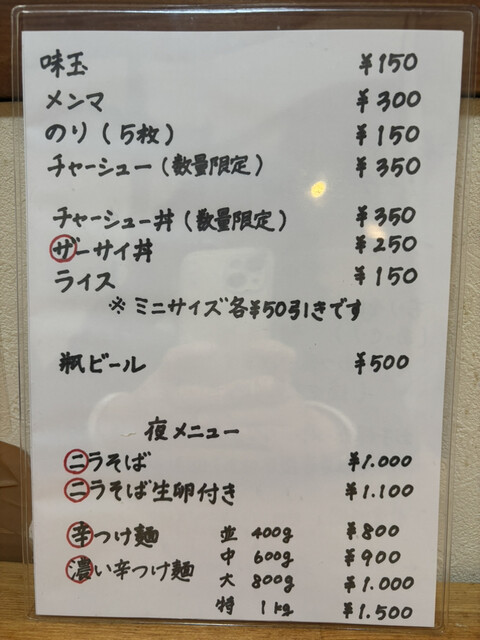 味玉 ¥150
メンマ ¥300
のり(5枚) ¥150
チャーシュー(数量限定) ¥350
チャーシュー丼(数量限定) ¥350
ザーサイ丼 ¥250
ライス ¥150
※ミニサイズ各¥50引きです
瓶ビール ¥500
夜メニュー
ニラそば ¥1.000
ニラそば生卵付き ¥1.100
辛つけ麺 並 400g ¥800
中 600g ¥900
濃い辛つけ麺 大 800g ¥1.000
特 1kg ¥1.500